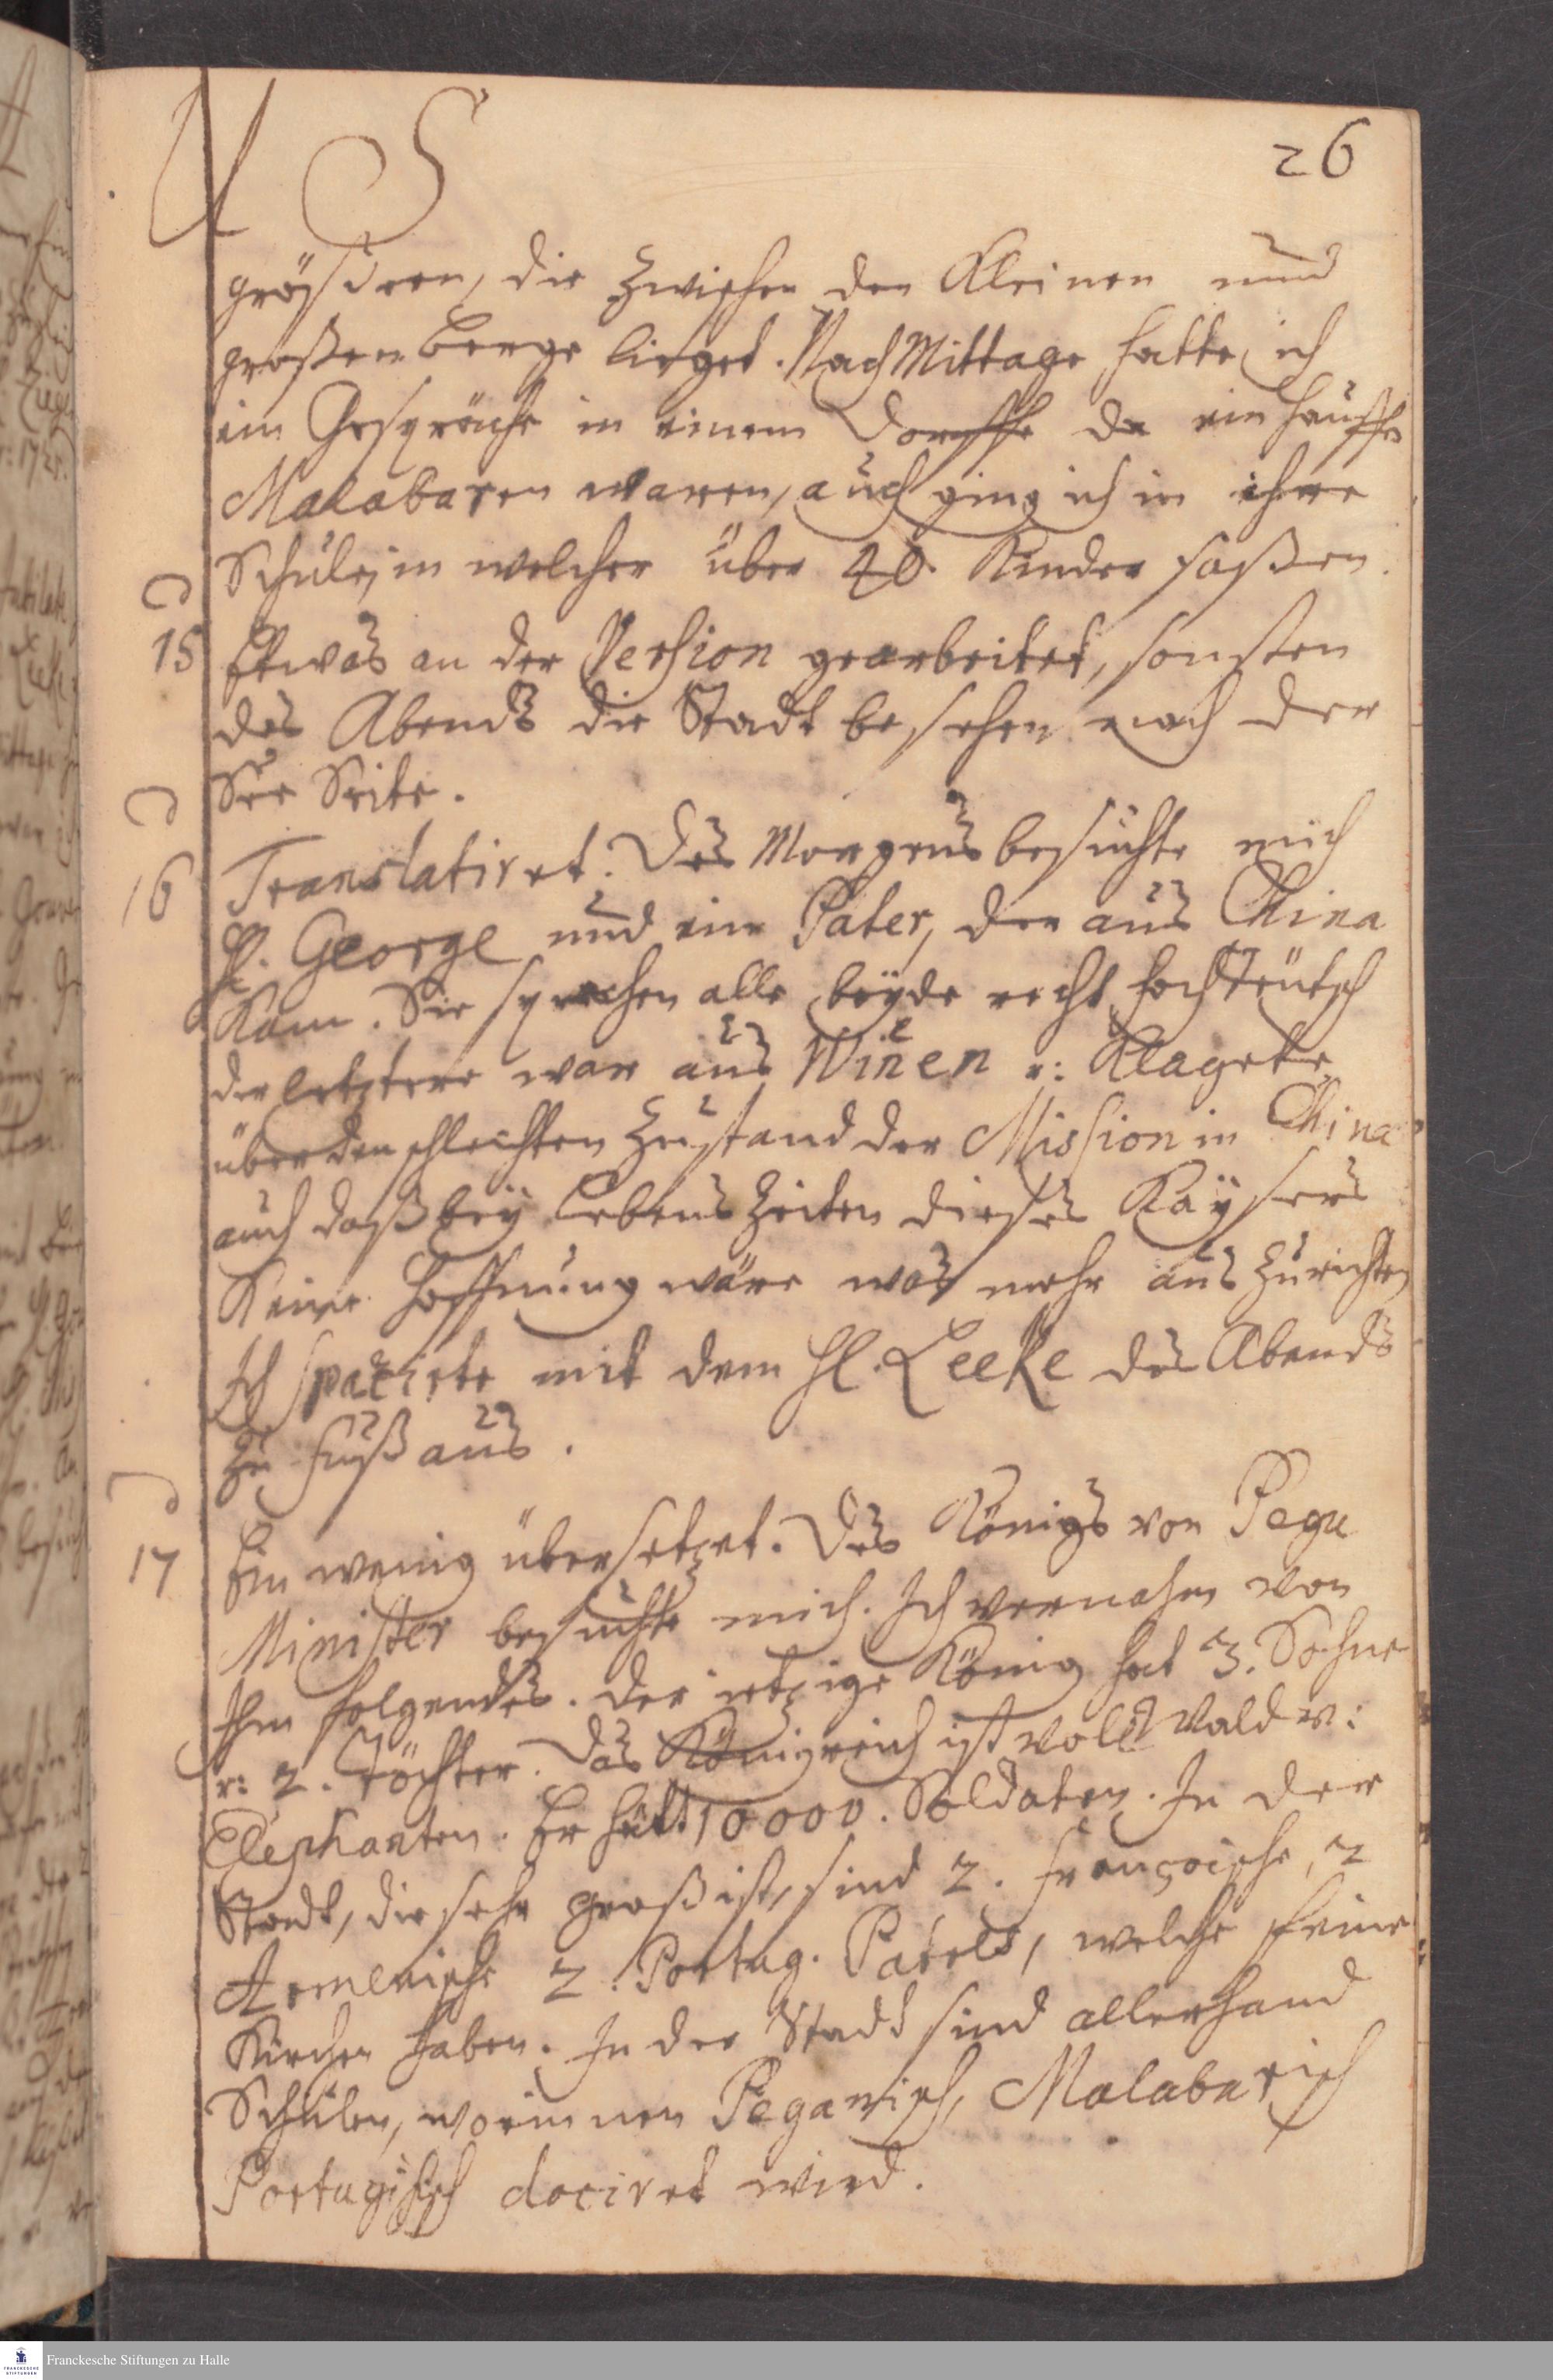 26
größeren, die zwischen den Kleinen und
großen Berge lieget. Nach Mittage hatte ich
ein Gespräche in einem Dorffe da ein hauffen
Malabaren waren, auch ging ich in ihre
Schule, in welcher über 40. Kinder saßen.
15 Etwas an der Version gearbeitet, sonsten
des Abends die Stadt besehen nach der
See Seite.
16 Translatiret. Des Morgens besuchte mich
H. George und ein Pater, der aus China
Kam. Sie sprachen alle beyde recht hochteutsch
der letztere war aus Wiñen u: Klagete
über den schlechten Zustand der Mission in China
auch daß bey Lebens Zeiten dieses Kaysers
Keine Hoffnung wäre was mehr auszurichten
Ich spazirte mit dem H. Leeke des Abends
zu Fuß aus.
17 Ein wenig übersetzet. Des Königs von Pegu
Minister besuchte mich. Ich vernahm von
Ihm folgendes. Der ietzige König hat 3. Söhne
u: 2. Töchter. Das Königreich ist voll Wald u:
Elephanten. Er hält 10000. Soldaten. In der
Stadt, die sehr groß ist, sind 2. französche, 2
Armenische 2. Portug. Patres, welche feine
Kirchen haben. In der Stadt sind allerhand
Schulen, worinnen Peganisch, Malabarisch
Portugisisch dociret wird.
Franckesche Stiftungen zu Halle